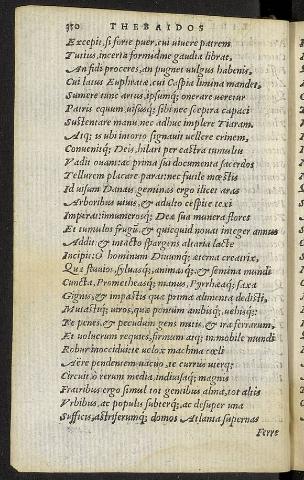 350 THEBAIDOS
Excepit, si forte puer, cui uiuere patrem
Tutius, incerta formidine gaudia librat,
An fidi proceres, an pugnet uulgus habenis,
Cui latus Euphratæ, cui Caspia limina mandet,
Sumere tunc arcus, ipsumq; onerare ueretur
Patris equum, uisusq; sibi nec sceptra capaci
Sustentare manu, nec adhuc implere Tiaram.
Atq; is ubi intorto signauit uellere crinem,
Conuenitq; Deis, hilari per castra tumultu
Vadit ouans: ac prima sui documenta sacerdos
Tellurem placare parat: nec futile mœstis
Id uisum Danais geminas ergo ilicet aras
Arboribus uiuis, & adulto cespite texi
Imperat: innumerosq; Deæ sua munera flores
Et cumulos frugũ, & quicquid noui integer annus
Addit: & intacto spargens altaria lacte
Incipit: O hominum Diuumq; æterna creatrix,
Quæ fluuios, syluasq;, animasq;, & semina mundi
Cuncta, Prometheasq; manus, Pyrrhæaq; saxa
Gignis, & impastis quæ prima alimenta dedisti,
Mutastiq; uiros, quæ pontum ambisq;, uehisq;:
Te penes, & pecudum gens mitis, & ira ferarum,
Et uolucrum requies, firmum atq; immobile mundi
Robur inoccidui: te uelox machina cœli
Aëre pendentem uacuo, te currus uterq;:
Circuit. ô rerum media, indiuisaq; magnis
Fratribus ergo simul tot gentibus alma, tot altis
Vrbibus, ac populis subterq;, ac desuper una
Sufficis, astriferumq; domos Atlanta supernas
Ferre